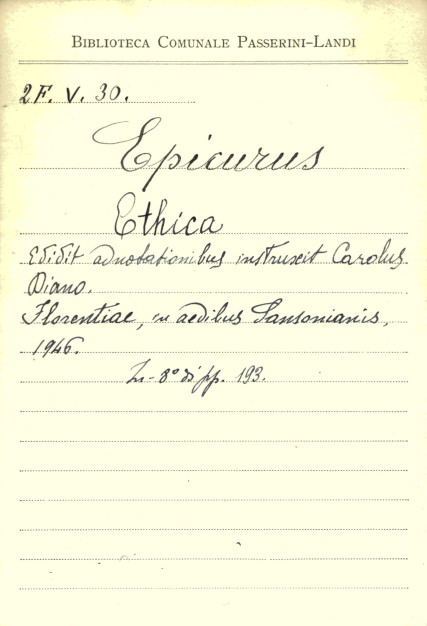 Biblioteca Comunale Passerini-Landi
2F. V. 30.
Epicurus
Ethica
Edidit adnotationibus instruxit Carolus
Diano.
Florentiae, in aedibus Sansonianis,
1946.
In-8° di pp. 193.